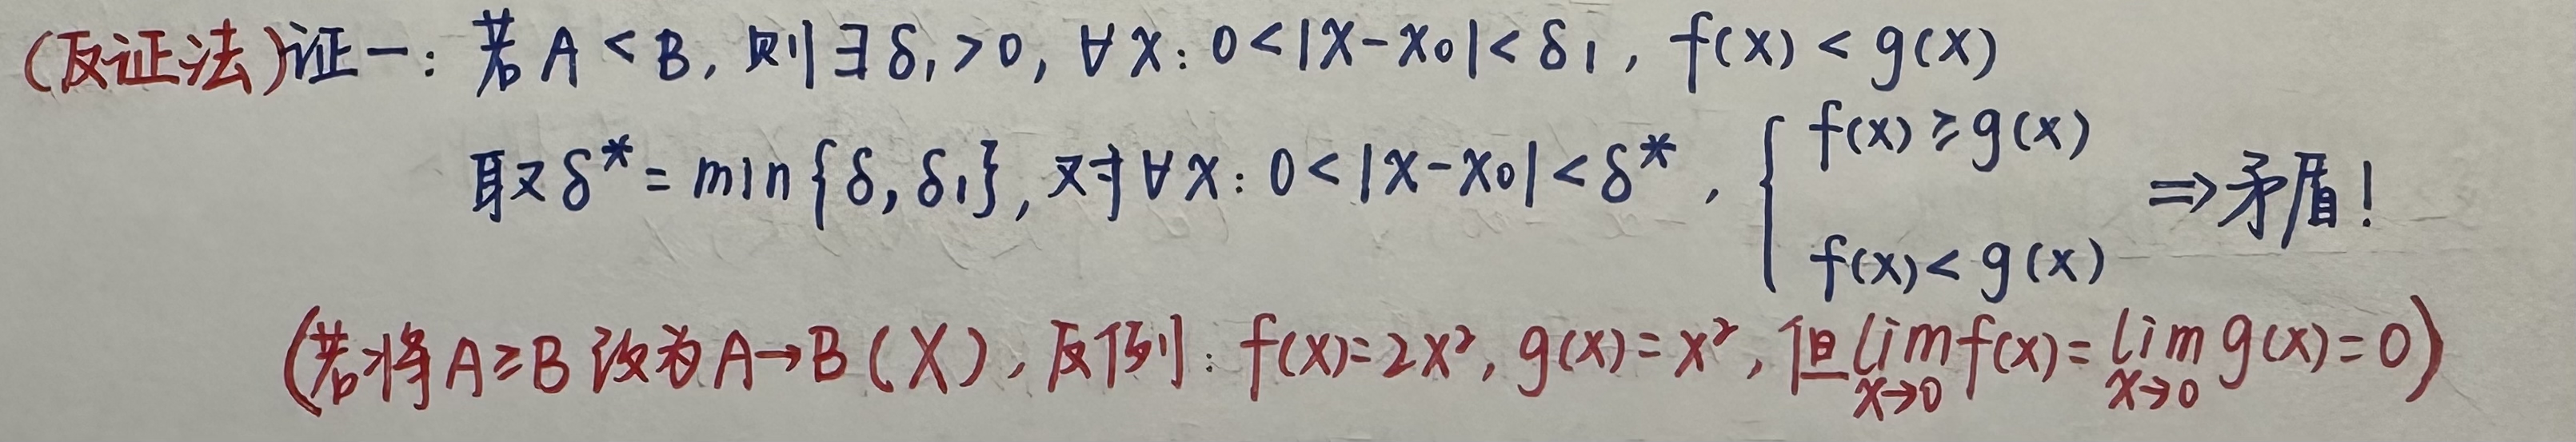 (反证法)证一: 若 A < B, 则 ∃ δ₁ > 0, ∀ x: 0 < |x - x₀| < δ₁, f(x) < g(x)
取 δ* = min{δ, δ₁}, 对 ∀ x: 0 < |x - x₀| < δ*, { f(x) ≥ g(x) f(x) < g(x) ⇒ 矛盾!
(若将 A ≥ B 改为 A → B (X), 反例: f(x) = 2x², g(x) = x², 但 lim x→0 f(x) = lim x→0 g(x) = 0)